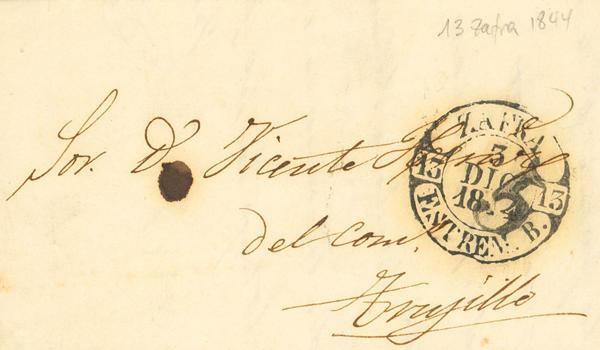 13 Zafra 1844
Sor. Dn. Vicente
del com.
Trujillo
ZAFRA
3
DIC
18
13 13
ESTREM. B.